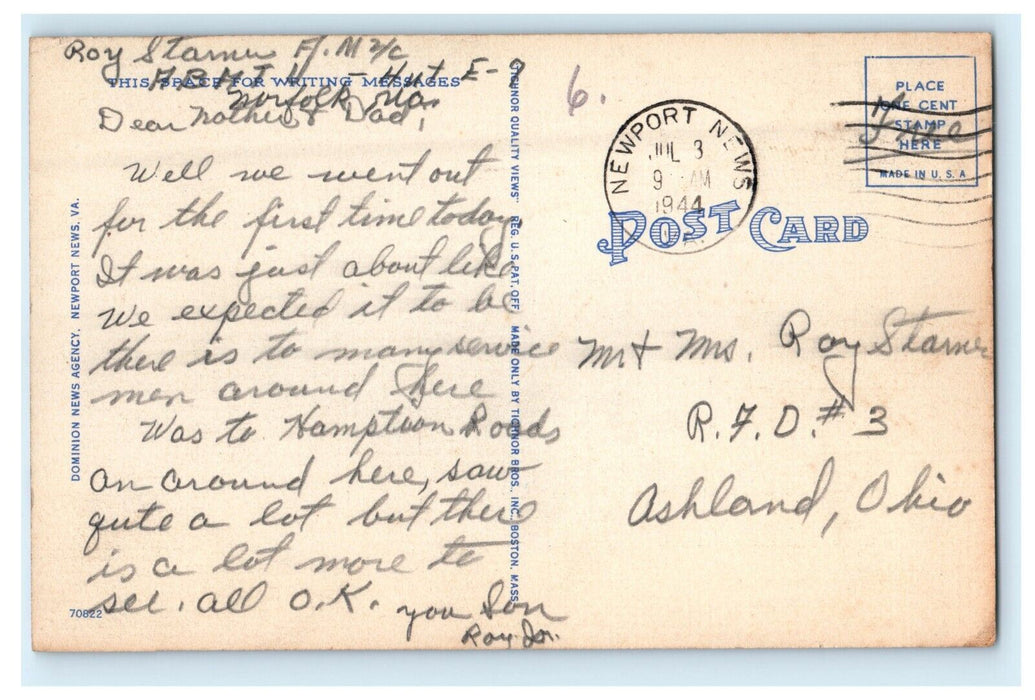 Roy Starner F/.M 2/c
THIS SPACE FOR WRITING MESSAGES
Hut E-9
Norfolk, Va.
Dear Mother & Dad,
Well we went out
for the first time today
It was just about like
We expected it to be
there is to many service
men around here
Was to Hamptoon Roads
an around here, saw
qute a lot but there
is a lot more to
see. all O.K. you Son
Roy Jr.
70822
DOMINION NEWS AGENCY, NEWPORT NEWS, VA.
"TICHNOR QUALITY VIEWS" REG. U. S. PAT. OFF. MADE ONLY BY TICHNOR BROS., INC., BOSTON, MASS.
6.
NEWPORT NEWS
JUL 3
9 AM
1944
PLACE
ONE CENT
STAMP
HERE
MADE IN U. S. A
Free
POST CARD
Mr + Mrs. Roy Starner
R.F.D. # 3
Ashland, Ohio